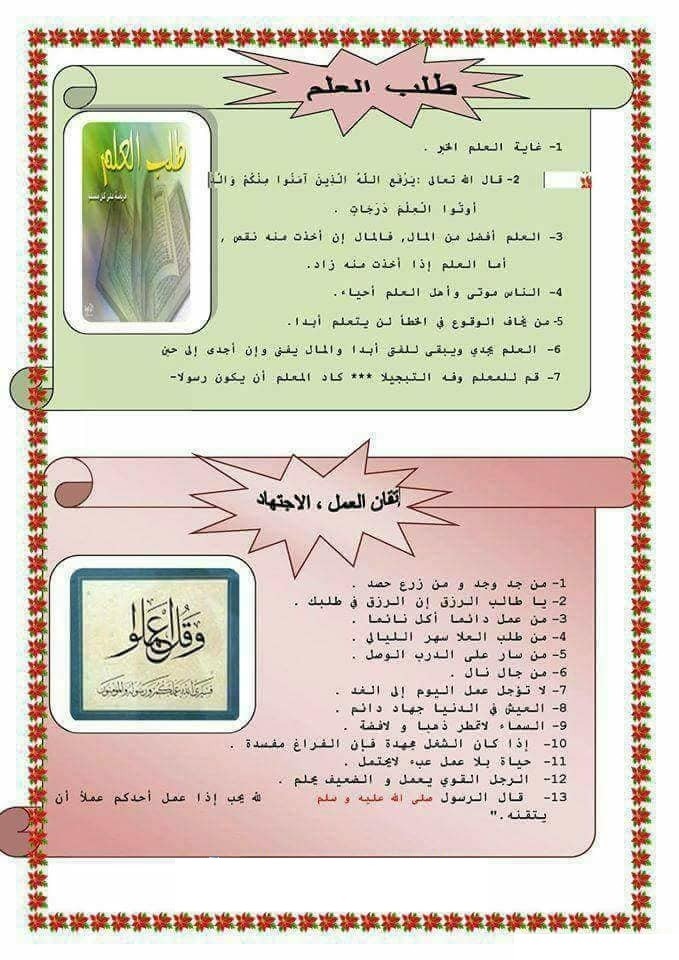 طلب العلم
طلب العلم
فريضة على كل مسلم
1- غاية العلم الخير .
2- قال الله تعالى :يَرْفَعِ اللَّهُ الَّذِينَ آمَنُوا مِنْكُمْ وَالَّذِ
أُوتُوا الْعِلْمَ دَرَجَاتٍ .
3- العلم أفضل من المال, فالمال إن أخذت منه نقص ,
أما العلم إذا أخذت منه زاد.
4- الناس موتى وأهل العلم أحياء.
5- من يخاف الوقوع في الخطأ لن يتعلم أبدا.
6- العلم يجدي ويبقى للفتى أبدا والمال يفنى وإن أجدى إلى حين
7- قم للمعلم وفه التبجيلا *** كاد المعلم أن يكون رسولا-
إتقان العمل ، الاجتهاد
وَقُلِ اعْمَلُوا
فسيرى الله عملكم ورسوله والمؤمنون
1- من جد وجد و من زرع حصد .
2- يا طالب الرزق إن الرزق في طلبك .
3- من عمل دائما أكل نائما .
4- من طلب العلا سهر الليالي .
5- من سار على الدرب الوصل .
6- من جال نال .
7- لا تؤجل عمل اليوم إلى الغد .
8- العيش في الدنيا جهاد دائم .
9- السماء لاتمطر ذهبا و لافضة .
10- إذا كان الشغل مجهدة فإن الفراغ مفسدة .
11- حياة بلا عمل عبء لايحتمل .
12- الرجل القوي يعمل و الضعيف يحلم .
13- قال الرسول صلى الله عليه و سلم لله يحب إذا عمل أحدكم عملاً أن
يتقنه."